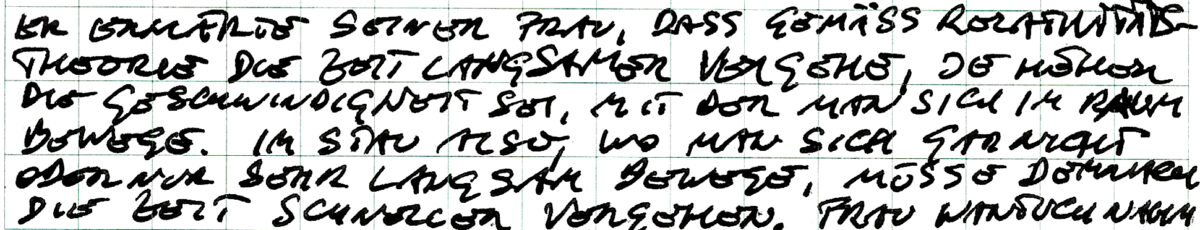 ER ERKLÄRTE SEINER FRAU, DASS GEMÄSS RELATIVITÄTS-
THEORIE DIE ZEIT LANGSAMER VERGEHE, JE HÖHER
DIE GESCHWINDIGKEIT SEI, MIT DER MAN SICH IM RAUM
BEWEGE. IM STAU ALSO, WO MAN SICH GAR NICHT
ODER NUR SEHR LANGSAM BEWEGE, MÜSSE DEMNACH
DIE ZEIT SCHNELLER VERGEHEN. FRAU NAHM